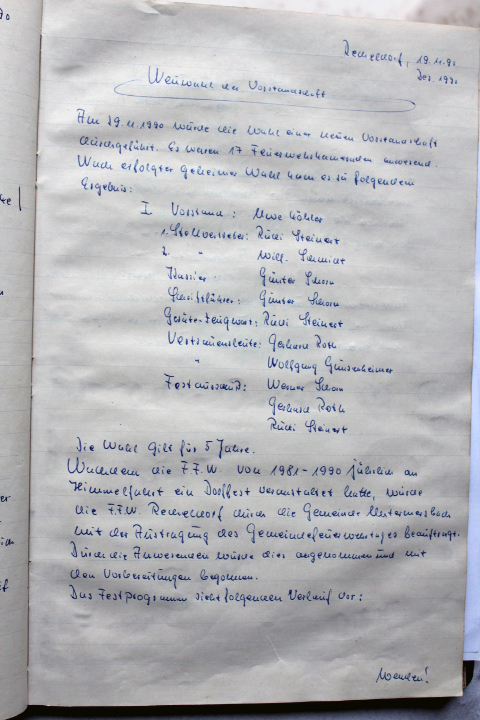 Reckendorf, 19.11.90
Dez. 1990
Neuwahl der Vorstandschaft
Am 29.11.1990 wurde die Wahl einer neuen Vorstandschaft
durchgeführt. Es waren 17 Feuerwehrkameraden anwesend.
Nach erfolgter geheimer Wahl kam es zu folgendem
Ergebnis:
I Vorstand: Uwe Köhler
1. Stellvertreter: Rudi Steinert
2. " Willi Schmidt
Kassier: Günter Schorn
Schriftführer: Günter Schorn
Geräte-Zeugwart: Rudi Steinert
Vertrauensleute: Gerhard Roth
" Wolfgang
Festausschuß: Werner Schorn
Gerhard Roth
Rudi Steinert
Die Wahl gilt für 5 Jahre.
Nachdem die F.F.W. von 1981-1990 jährlich an
Himmelfahrt ein Dorffest veranstaltet hatte, wurde
die F.F.W. Reckendorf durch die Gemeinde Untermerzbach
mit der Austragung des Gemeindefeuerwehrtages beauftragt.
Durch die Anwesenden wurde dies angenommen und mit
den Vorbereitungen begonnen.
Das Festprogramm sieht folgenden Verlauf vor:
Wenden!